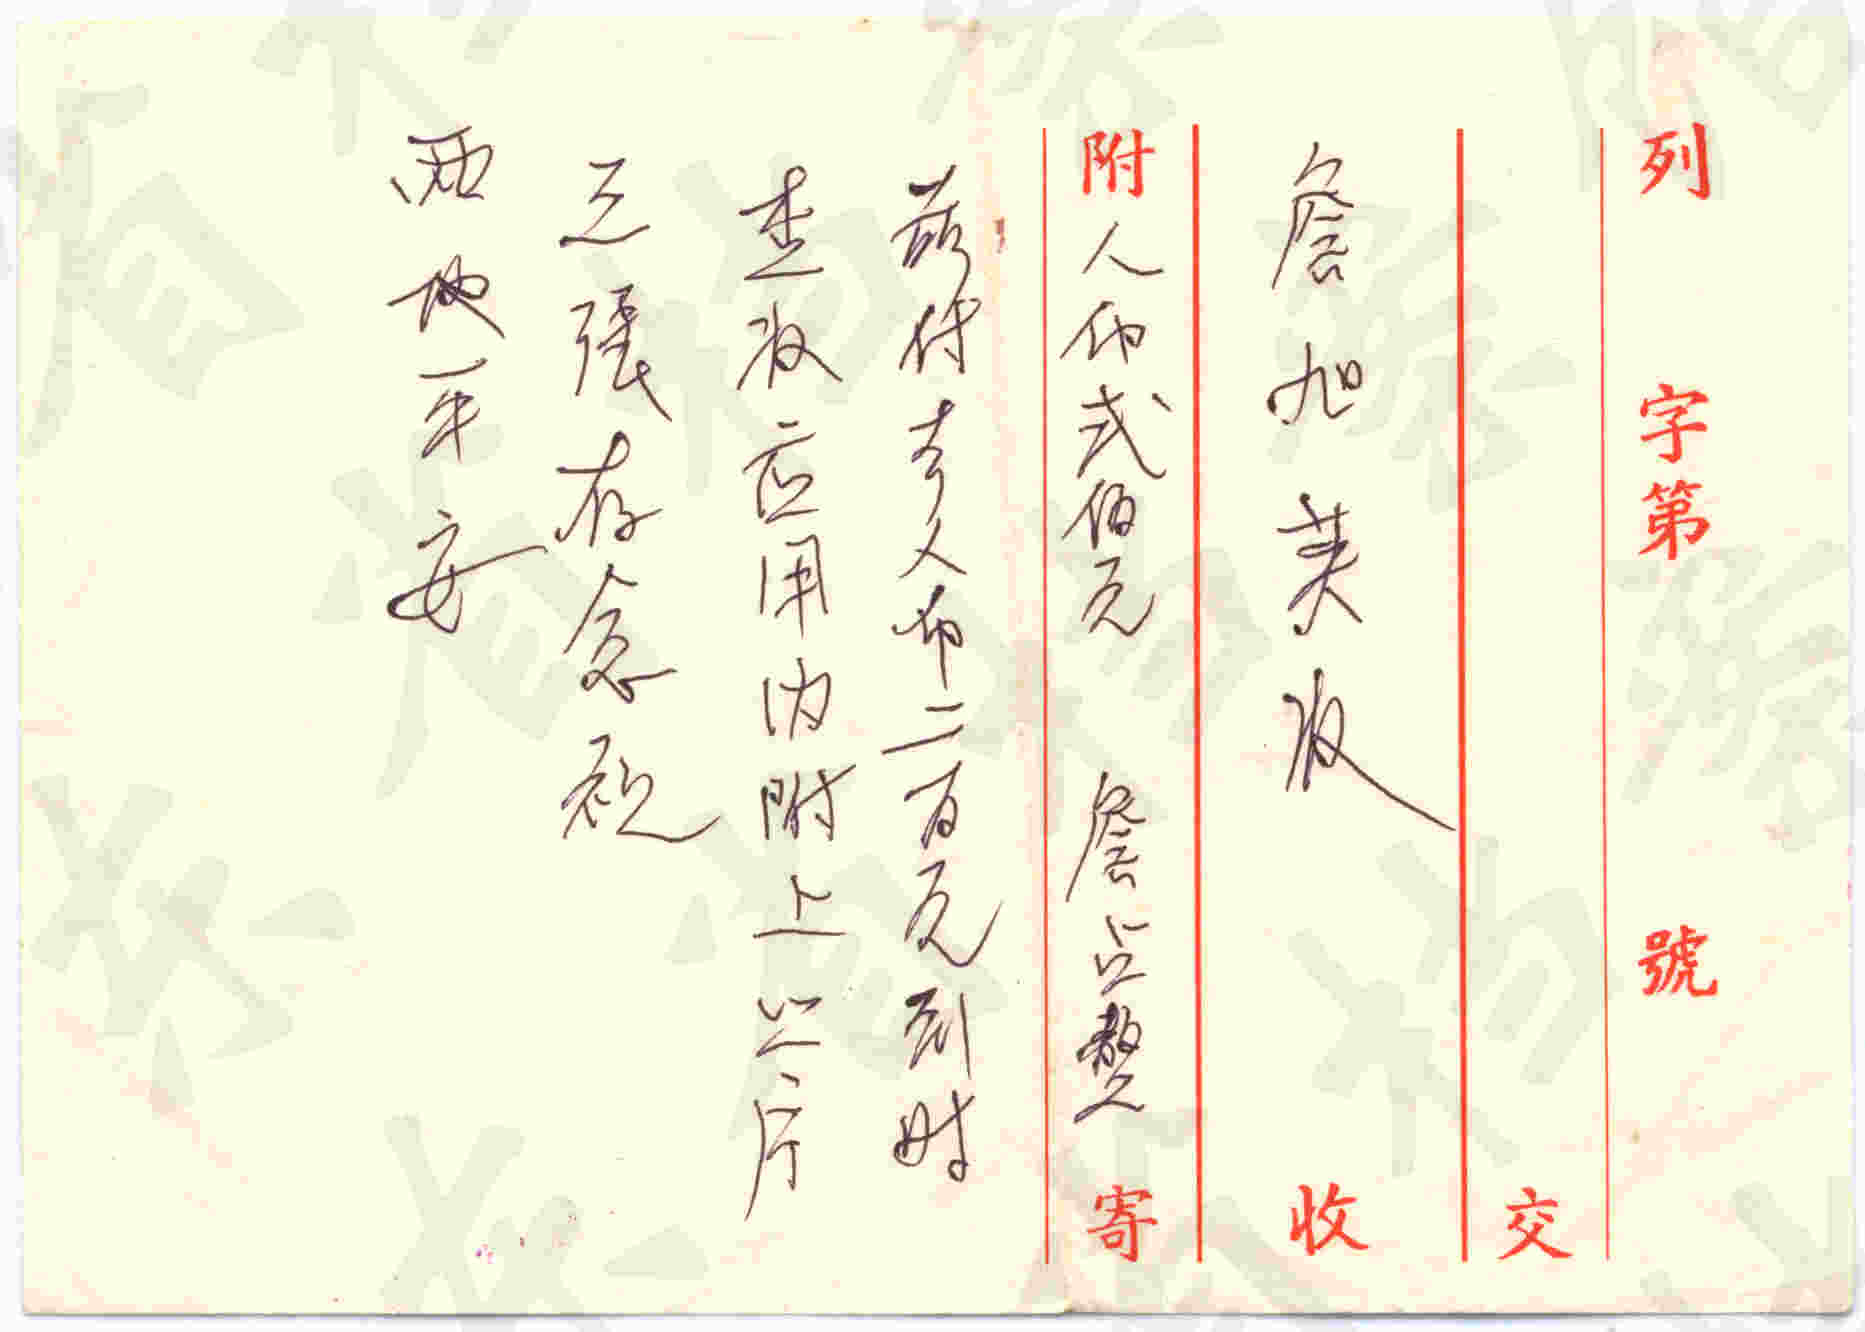 列 字第 號
交
詹旭英收 收
附人币弍佰元 詹益整 寄
兹付去人币二百元到时
查收应用内附上照片
三張存念祝
两地平安